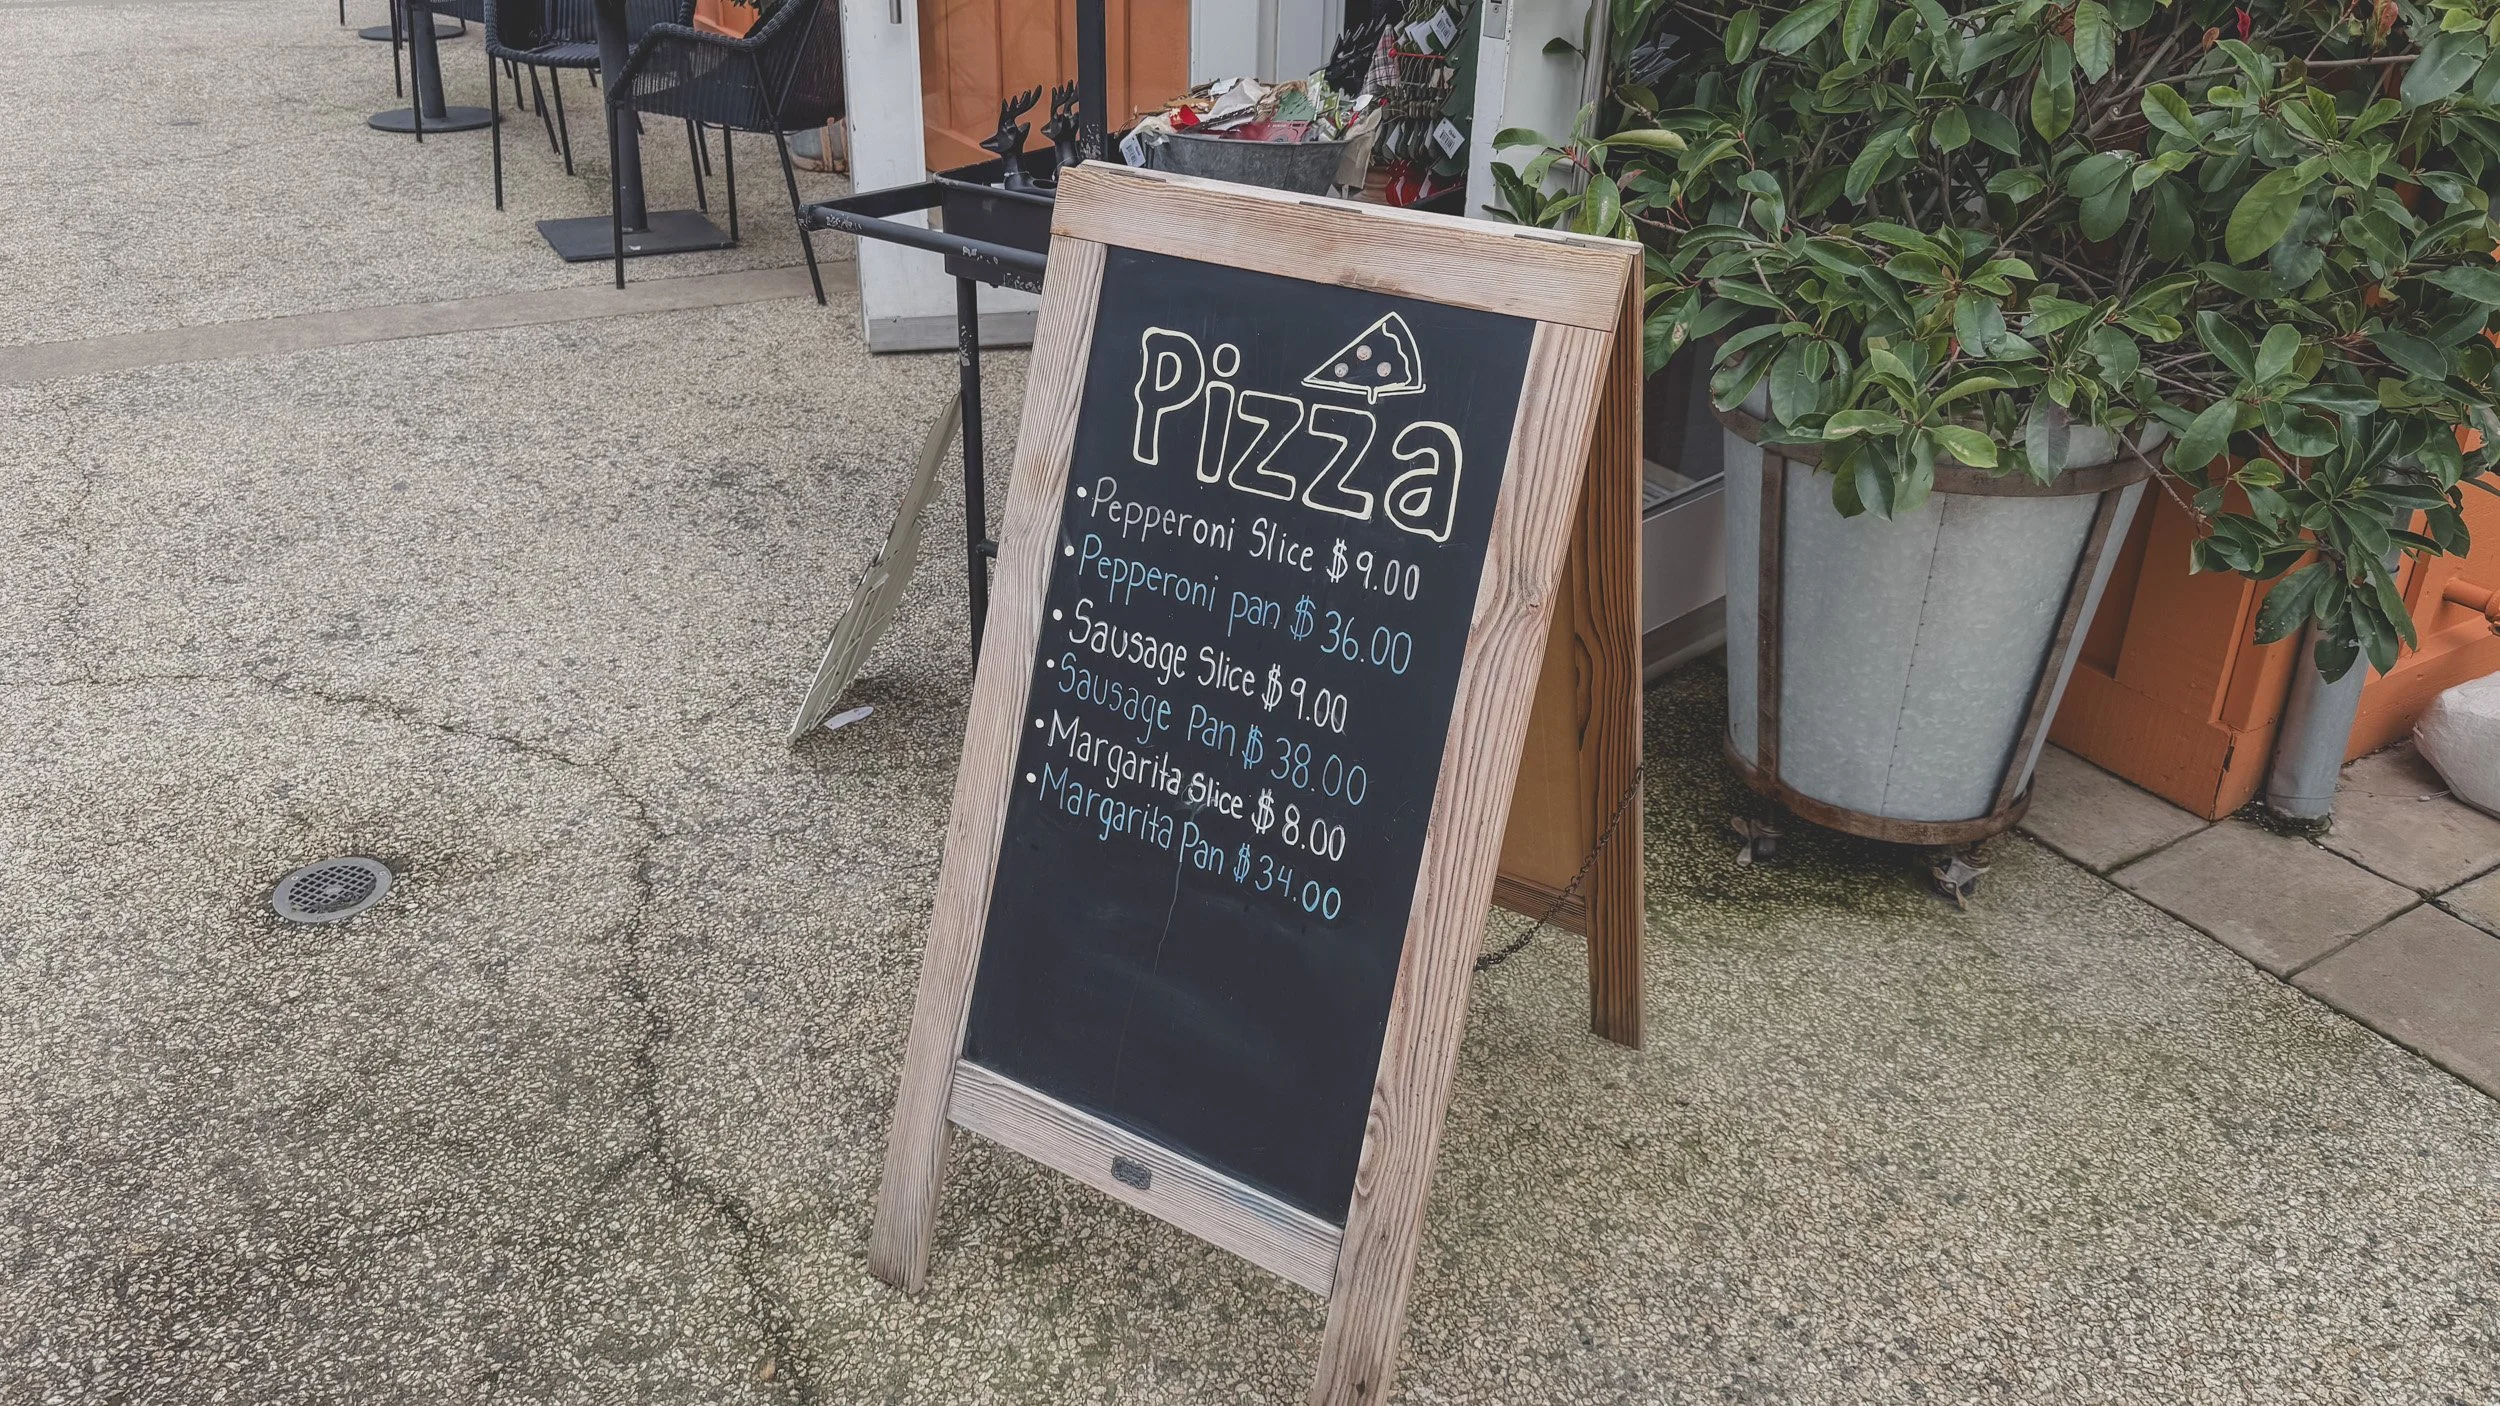 Pizza
• Pepperoni Slice $9.00
• Pepperoni pan $36.00
• Sausage Slice $9.00
• Sausage Pan $38.00
• Margarita Slice $8.00
• Margarita Pan $34.00